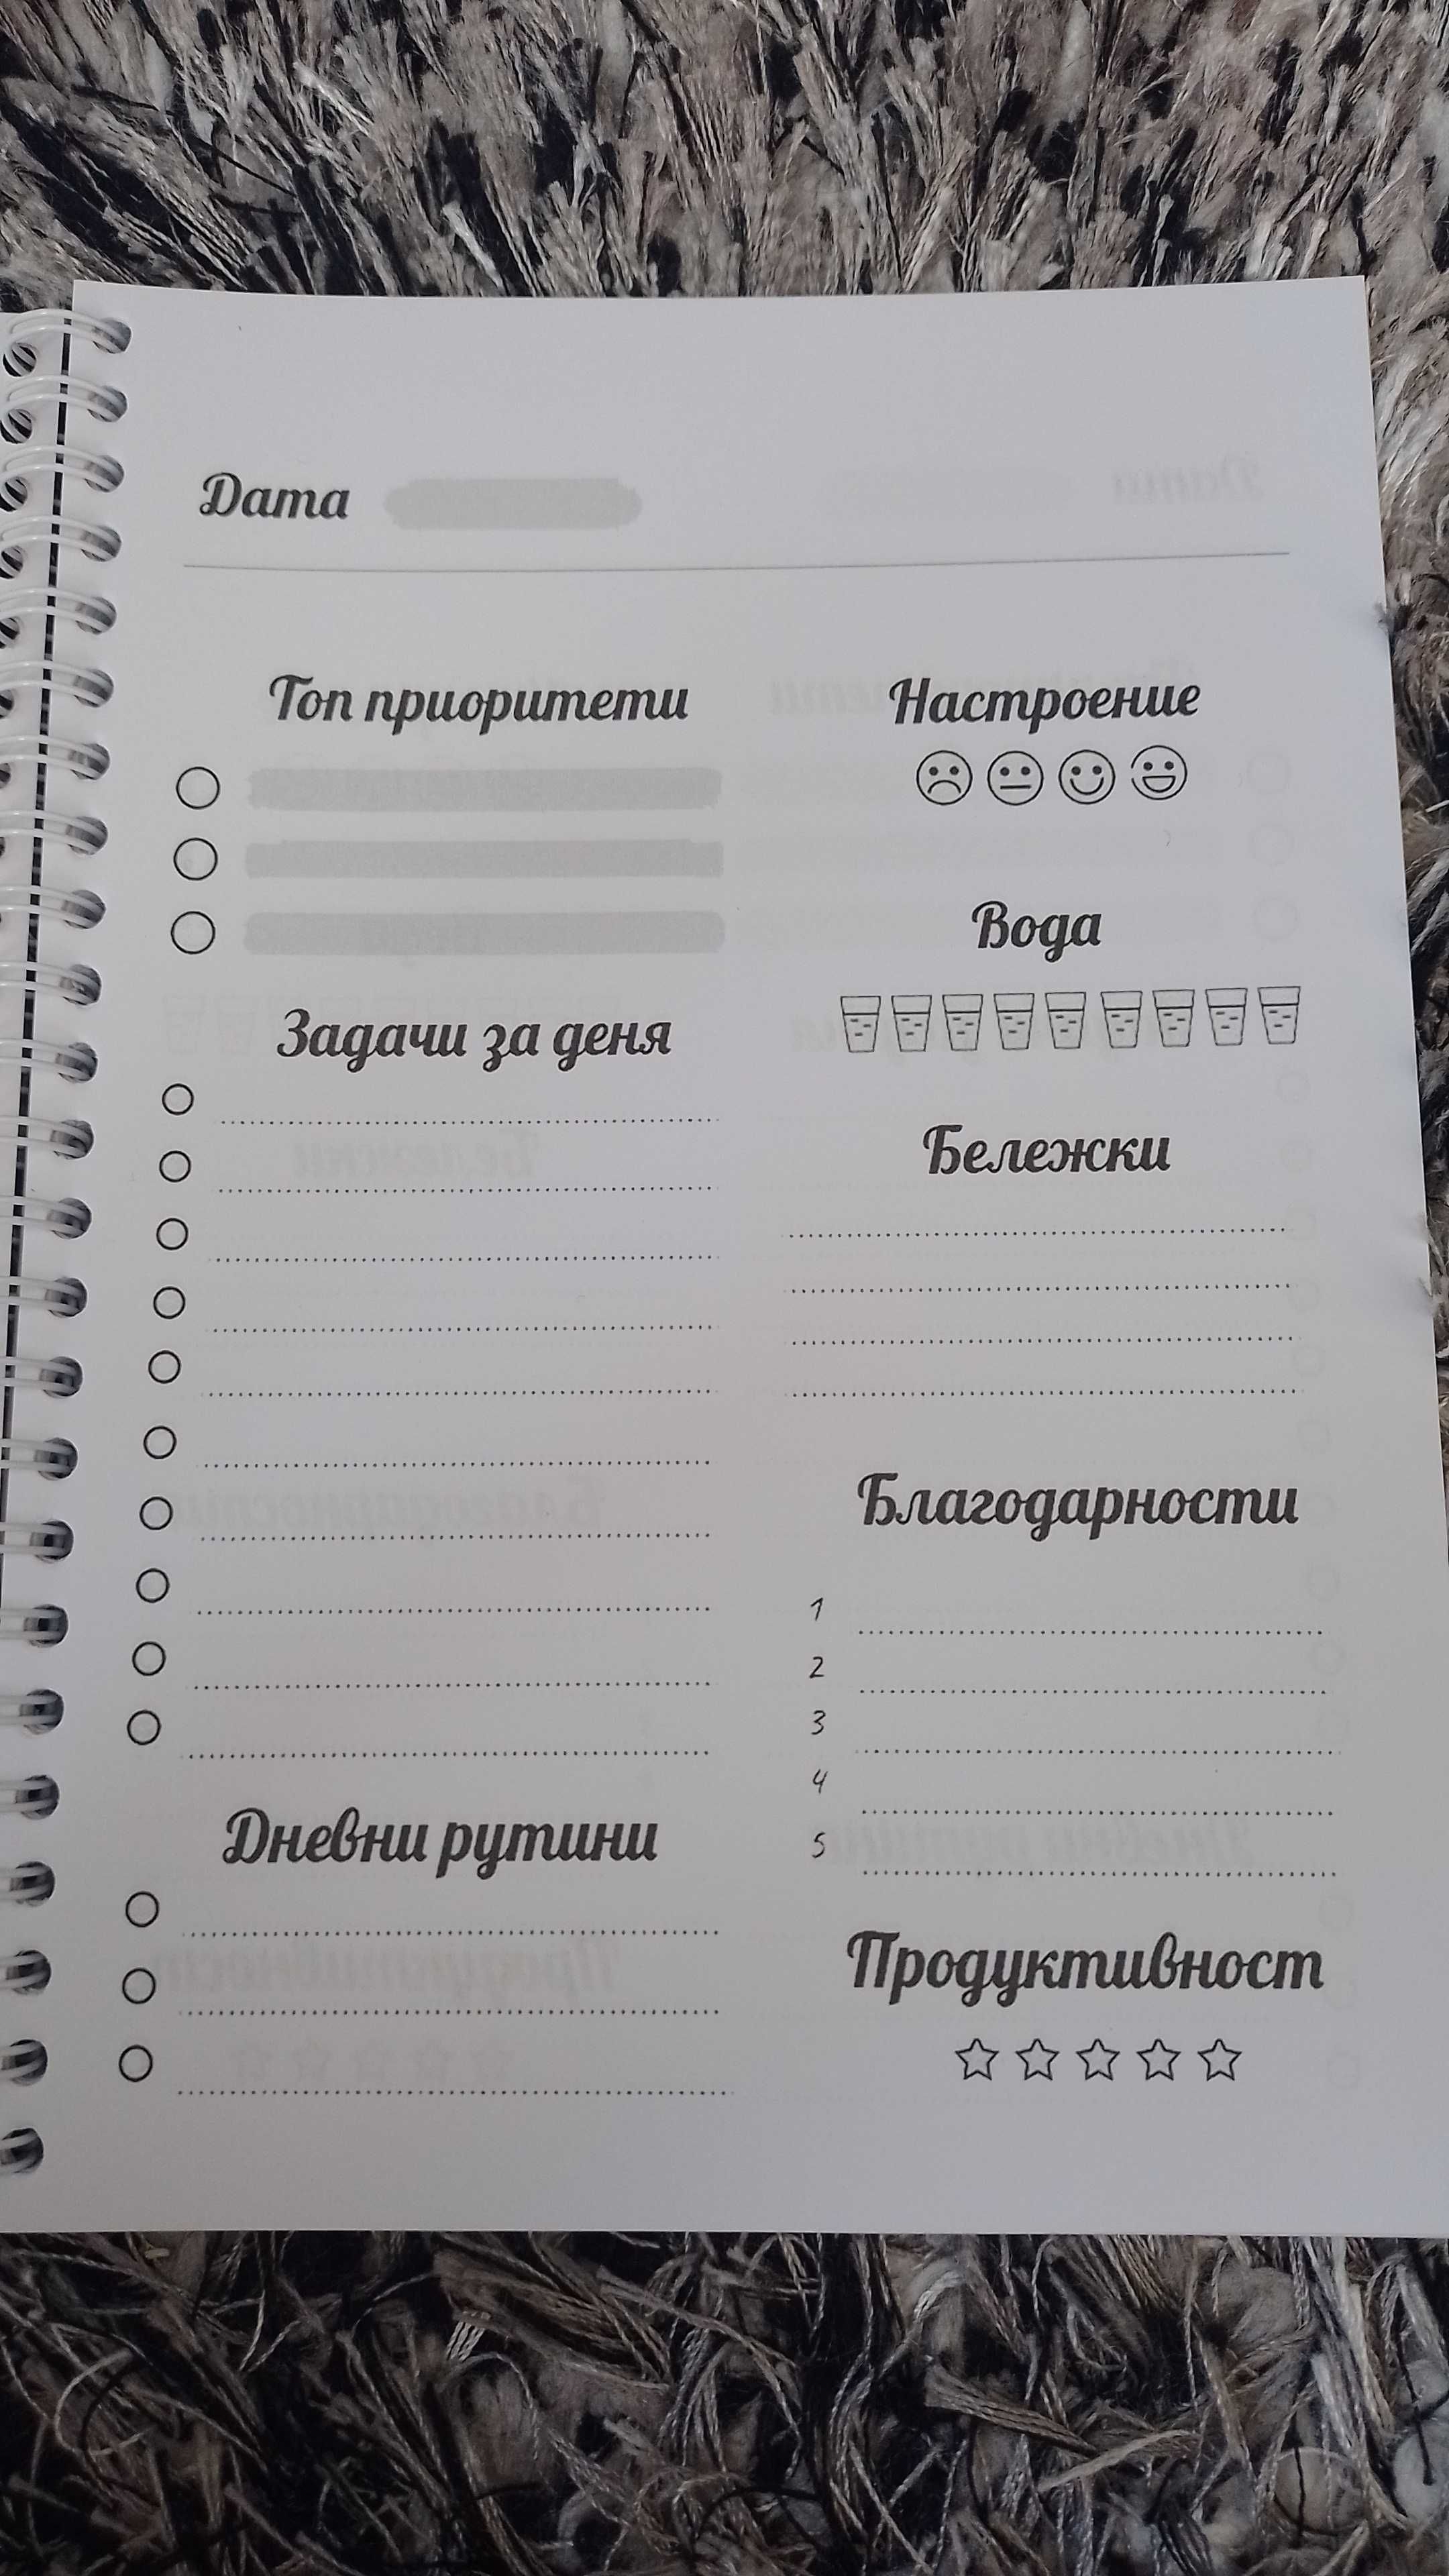 Дата
Топ приоритети
Задачи за деня
Дневни рутини
Настроение
Вода
Бележки
Благодарности
1
2
3
4
5
Продуктивност